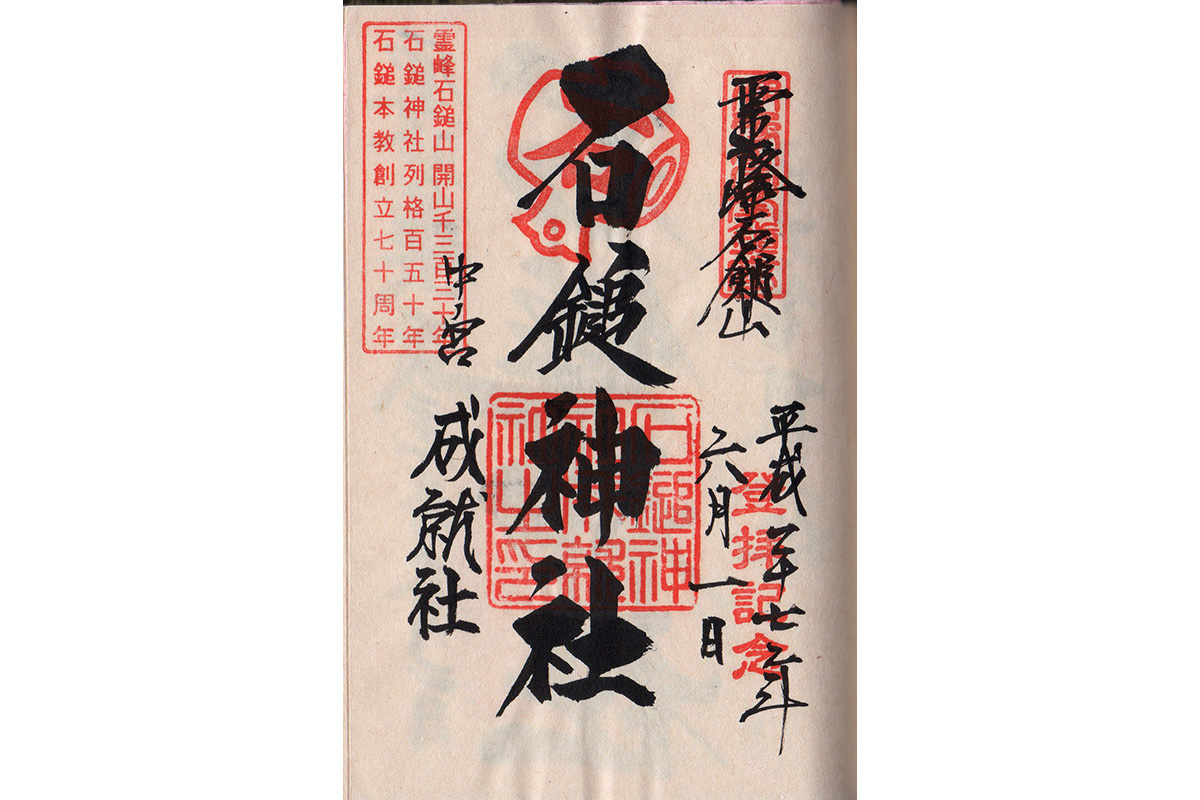 石鎚山
平成二十七年
六月一日
登拝記念
石鎚神社
石鎚神
中宮
成就社
霊峰石鎚山開山千三百三十年
石鎚神社列格百五十年
石鎚本教創立七十周年